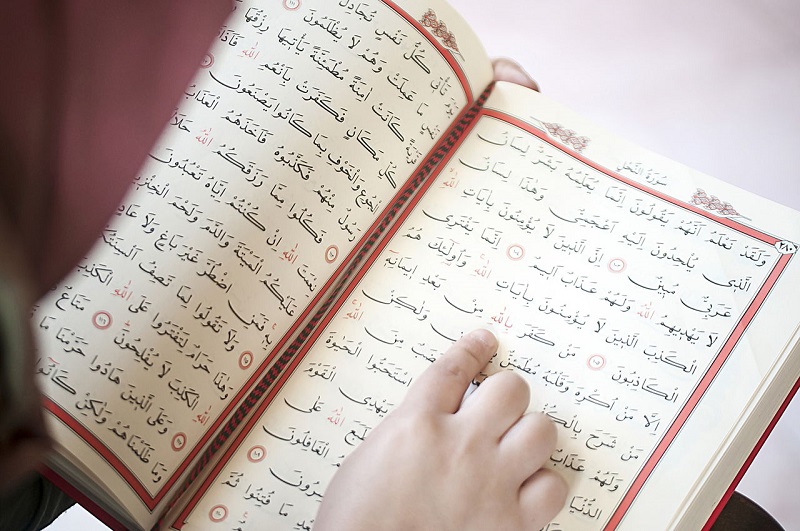 سُورَةُ النَّحْلِ
٢٨٠
وَلَقَدْ نَعْلَمُ اَنَّهُمْ يَقُولُونَ اِنَّمَا يُعَلِّمُهُ بَشَرٌ لِسَانُ
الَّذِي يُلْحِدُونَ اِلَيْهِ اَعْجَمِيٌّ وَهٰذَا لِسَانٌ
عَرَبِيٌّ مُبِينٌ ١٠٣ اِنَّ الَّذِينَ لَا يُؤْمِنُونَ بِاٰيَاتِ اللّٰهِ
لَا يَهْدِيهِمُ اللّٰهُ وَلَهُمْ عَذَابٌ اَلِيمٌ ١٠٤ اِنَّمَا يَفْتَرِي
الْكَذِبَ الَّذِينَ لَا يُؤْمِنُونَ بِاٰيَاتِ اللّٰهِ وَاُولٰئِكَ هُمُ
الْكَاذِبُونَ ١٠٥ مَنْ كَفَرَ بِاللّٰهِ مِنْ بَعْدِ اِيمَانِهِ
اِلَّا مَنْ اُكْرِهَ وَقَلْبُهُ مُطْمَئِنٌّ وَلٰكِنْ
مَنْ شَرَحَ بِالْكُفْرِ مِنَ اللّٰهِ
وَلَهُمْ عَذَابٌ اسْتَحَبُّوا الْحَيٰوةَ
الدُّنْيَا يَهْدِي الْقَوْمَ
اللّٰهُ عَلٰى
الْغَافِلُونَ ١٠٨
١٠٩
مَا فُتِنُوا ثُمَّ
يَوْمَ تَأْتِي كُلُّ نَفْسٍ تُجَادِلُ
مَا عَمِلَتْ وَهُمْ لَا يُظْلَمُونَ ١١١
كَانَتْ اٰمِنَةً مُطْمَئِنَّةً يَأْتِيهَا رِزْقُهَا
كُلِّ مَكَانٍ فَكَفَرَتْ بِاَنْعُمِ اللّٰهِ
الْجُوعِ وَالْخَوْفِ بِمَا كَانُوا يَصْنَعُونَ
رَسُولٌ مِنْهُمْ فَكَذَّبُوهُ فَاَخَذَهُمُ الْعَذَابُ
١١٣ فَكُلُوا مِمَّا رَزَقَكُمُ اللّٰهُ
نِعْمَتَ اللّٰهِ اِنْ كُنْتُمْ اِيَّاهُ تَعْبُدُونَ
عَلَيْكُمُ الْمَيْتَةَ وَالدَّمَ وَلَحْمَ الْخِنْزِيرِ
بِهِ فَمَنِ اضْطُرَّ غَيْرَ بَاغٍ وَلَا عَادٍ
١١٥ وَلَا تَقُولُوا لِمَا تَصِفُ
وَهٰذَا حَرَامٌ لِتَفْتَرُوا عَلَى اللّٰهِ الْكَذِبَ
اللّٰهِ الْكَذِبَ لَا يُفْلِحُونَ ١١٦ مَتَاعٌ
١١٧ وَعَلَى الَّذِينَ هَادُوا حَرَّمْنَا مَا
وَمَا ظَلَمْنَاهُمْ وَلٰكِنْ كَانُوا